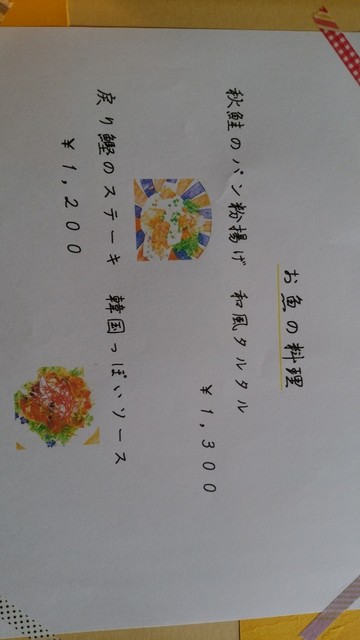 お魚の料理
秋鮭のパン粉揚げ 和風タルタル
¥1,300
戻り鰹のステーキ 韓国っぽいソース
¥1,200